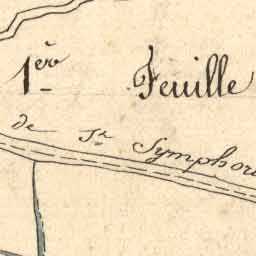 1ère Feuille
de St Symphor